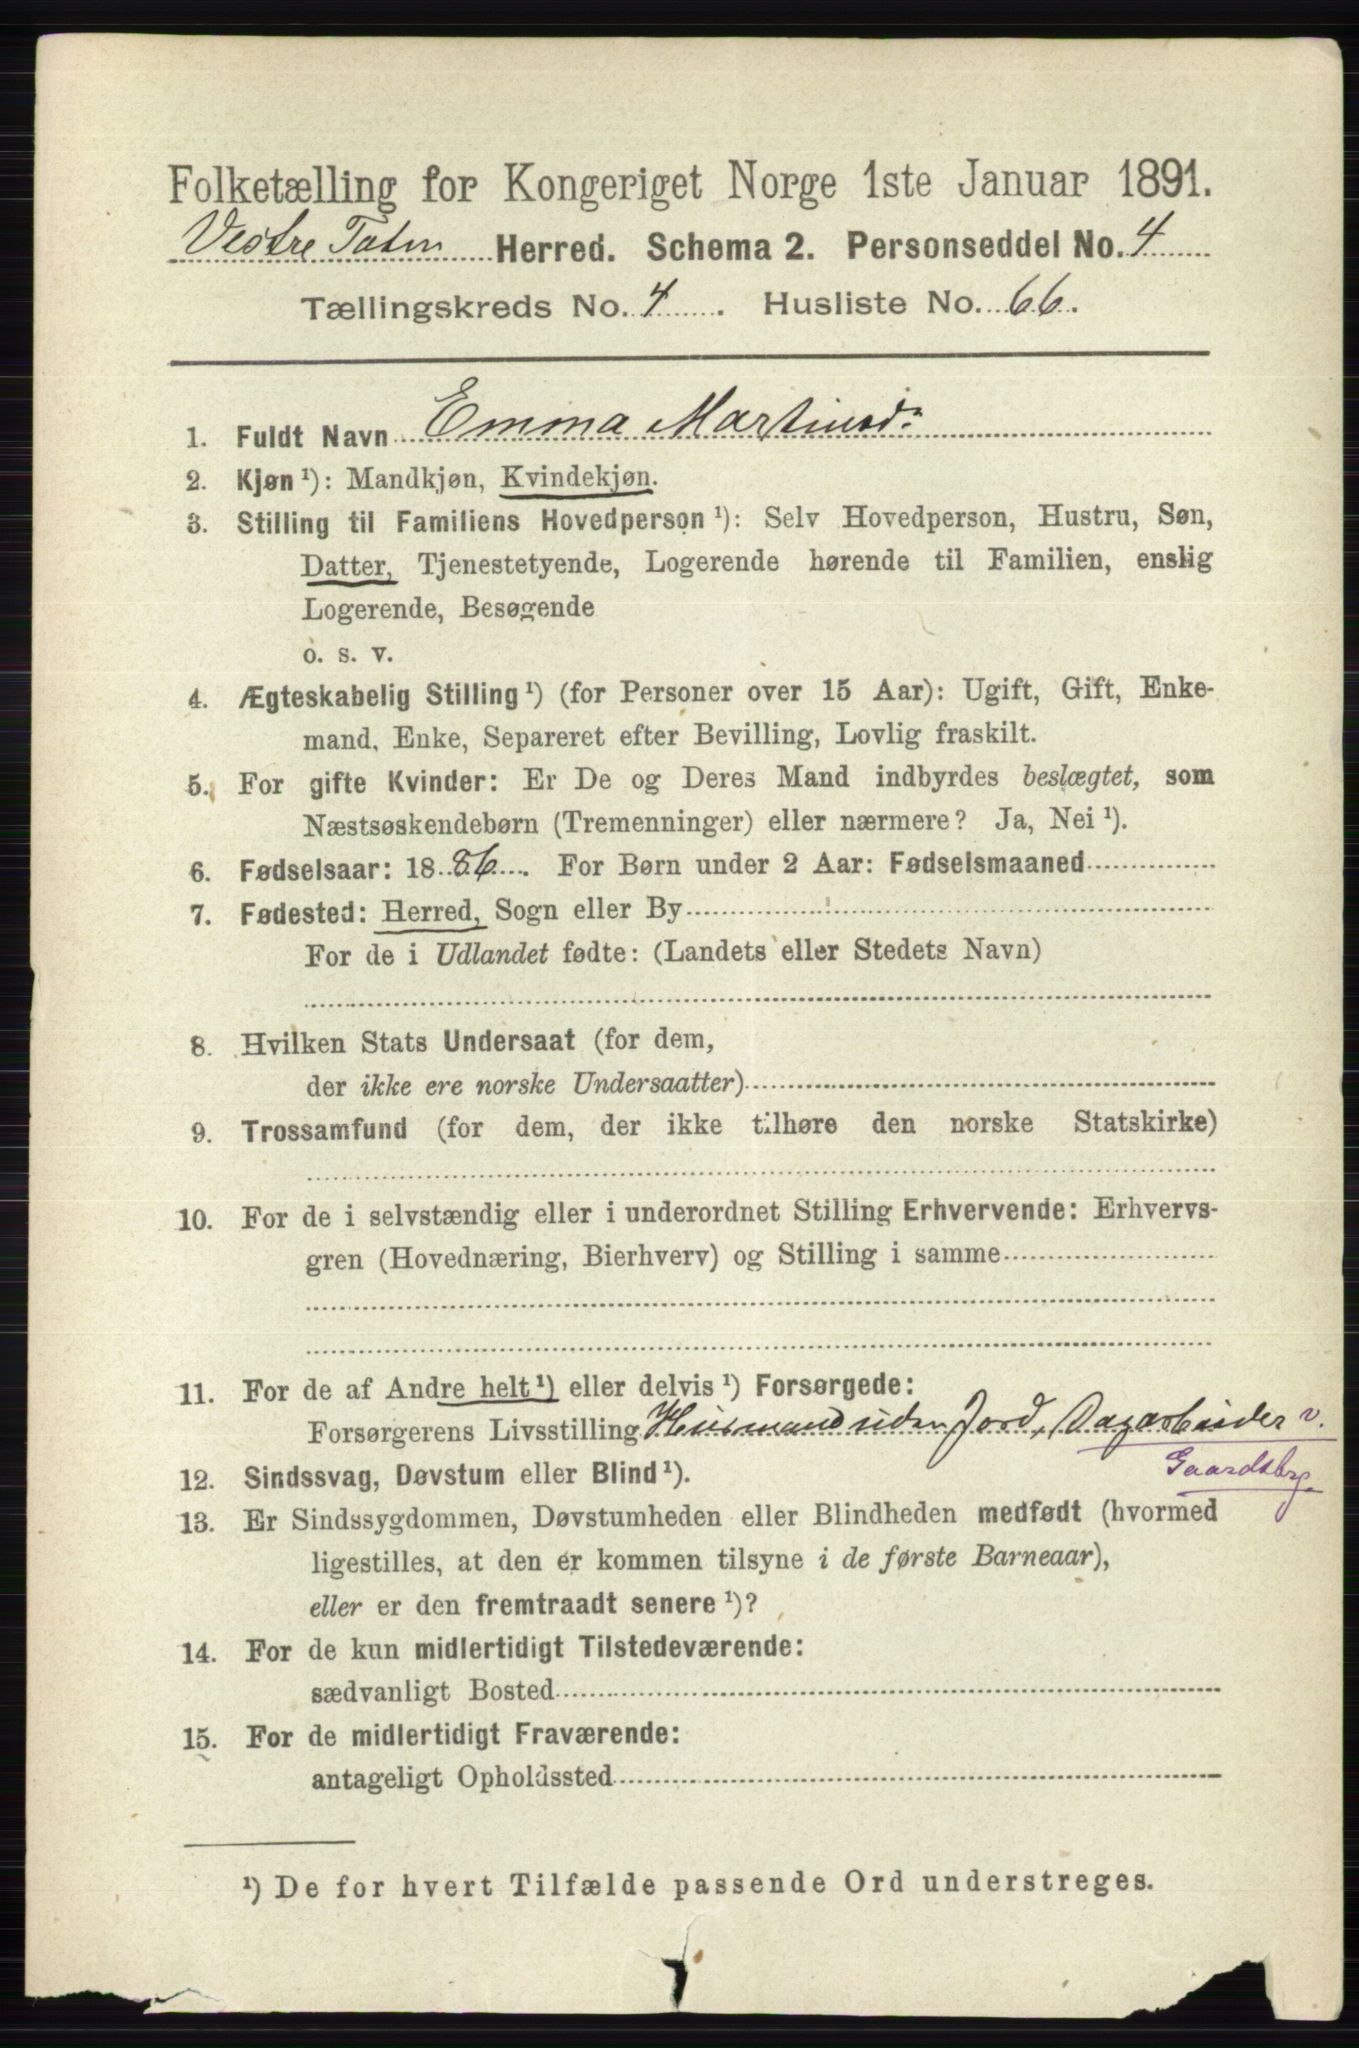 Folketælling for Kongeriget Norge 1ste Januar 1891.
Vestre Toten Herred. Schema 2. Personseddel No. 4
Tællingskreds No. 4. Husliste No. 66.
1. Fuldt Navn Emma Martinsd.
2. Kjøn ¹): Mandkjøn, Kvindekjøn.
3. Stilling til Familiens Hovedperson ¹): Selv Hovedperson, Hustru, Søn,
Datter, Tjenestetyende, Logerende hørende til Familien, enslig
Logerende, Besøgende
o. s. v.
4. Ægteskabelig Stilling ¹) (for Personer over 15 Aar): Ugift, Gift, Enke-
mand, Enke, Separeret efter Bevilling, Lovlig fraskilt.
5. For gifte Kvinder: Er De og Deres Mand indbyrdes beslægtet, som
Næstsøskendebørn (Tremenninger) eller nærmere? Ja, Nei ¹).
6. Fødselsaar: 1886. For Børn under 2 Aar: Fødselsmaaned
7. Fødested: Herred, Sogn eller By
For de i Udlandet fødte: (Landets eller Stedets Navn)
8. Hvilken Stats Undersaat (for dem,
der ikke ere norske Undersaatter)
9. Trossamfund (for dem, der ikke tilhøre den norske Statskirke)
10. For de i selvstændig eller i underordnet Stilling Erhvervende: Erhvervs-
gren (Hovednæring, Bierhverv) og Stilling i samme
11. For de af Andre helt ¹) eller delvis ¹) Forsørgede:
Forsørgerens Livsstilling Husmand uden Jord, Dagarbeider v.
Gaardsbrg.
12. Sindssvag, Døvstum eller Blind ¹).
13. Er Sindssygdommen, Døvstumheden eller Blindheden medfødt (hvormed
ligestilles, at den er kommen tilsyne i de første Barneaar),
eller er den fremtraadt senere ¹)?
14. For de kun midlertidigt Tilstedeværende:
sædvanligt Bosted
15. For de midlertidigt Fraværende:
antageligt Opholdssted
¹) De for hvert Tilfælde passende Ord understreges.